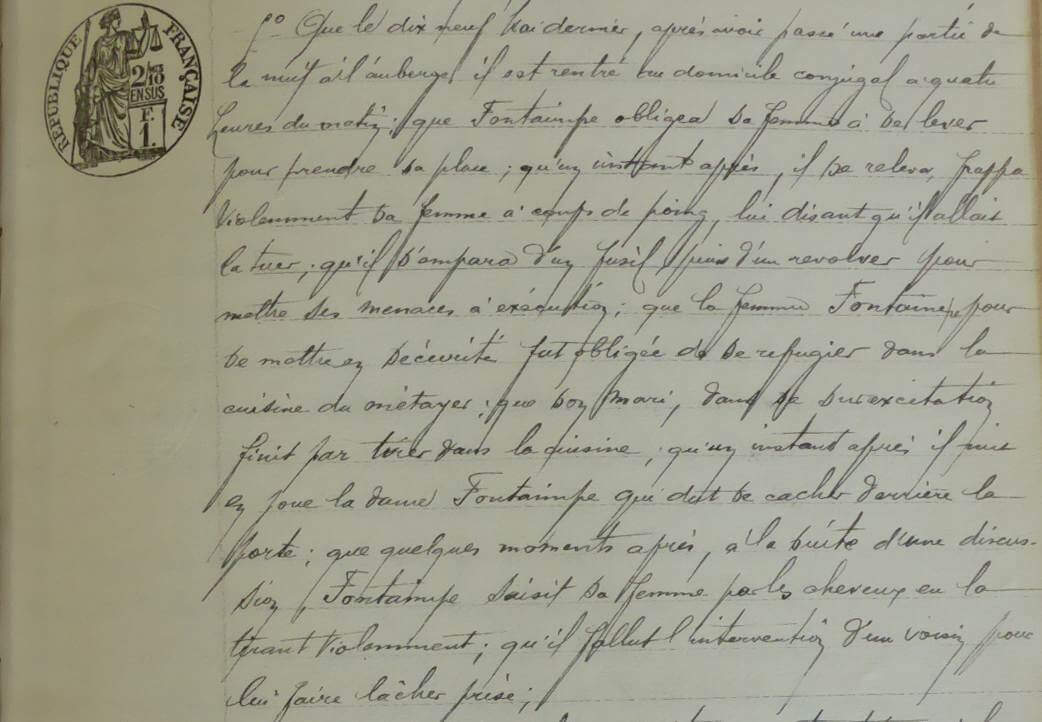 RÉPUBLIQUE FRANÇAISE
2/10
EN SUS
F
1.
5° Que le dix neuf Mai dernier, après avoir passé une partie de
la nuit à l'auberge, il est rentré au domicile conjugal à quatre
heures du matin; que Fontaimpe obligea sa femme à se lever
pour prendre sa place; qu'un instant après, il se releva, frappa
violemment sa femme à coups de poing, lui disant qu'il allait
la tuer; qu'il s'empara d'un fusil, puis d'un revolver pour
mettre ses menaces à exécution; que la femme Fontaimpe, pour
se mettre en sécurité fut obligée de se refugier dans la
cuisine du métayer; que son mari, dans sa surexcitation
finit par tirer dans la cuisine; qu'un instant après il mit
en joue la dame Fontaimpe qui dut se cacher derrière la
porte; que quelques moments après, à la suite d'une discus-
sion, Fontaimpe saisit sa femme par les cheveux en la
tirant violemment; qu'il fallut l'intervention d'un voisin pour
lui faire lâcher prise;